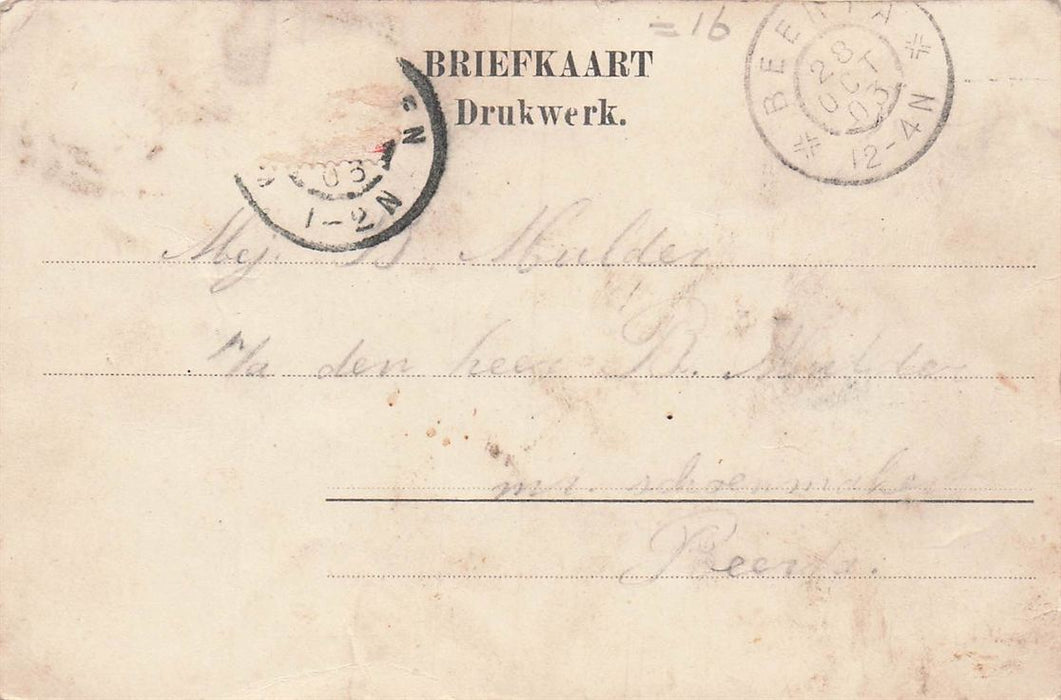 =16
BRIEFKAART
Drukwerk.
BEERTA
28
OCT
03
12-4N
EN
03
1-2N
Mej. B Mulder
p/a den heer B. Mulder
mr. schoenmaker
Beerta.